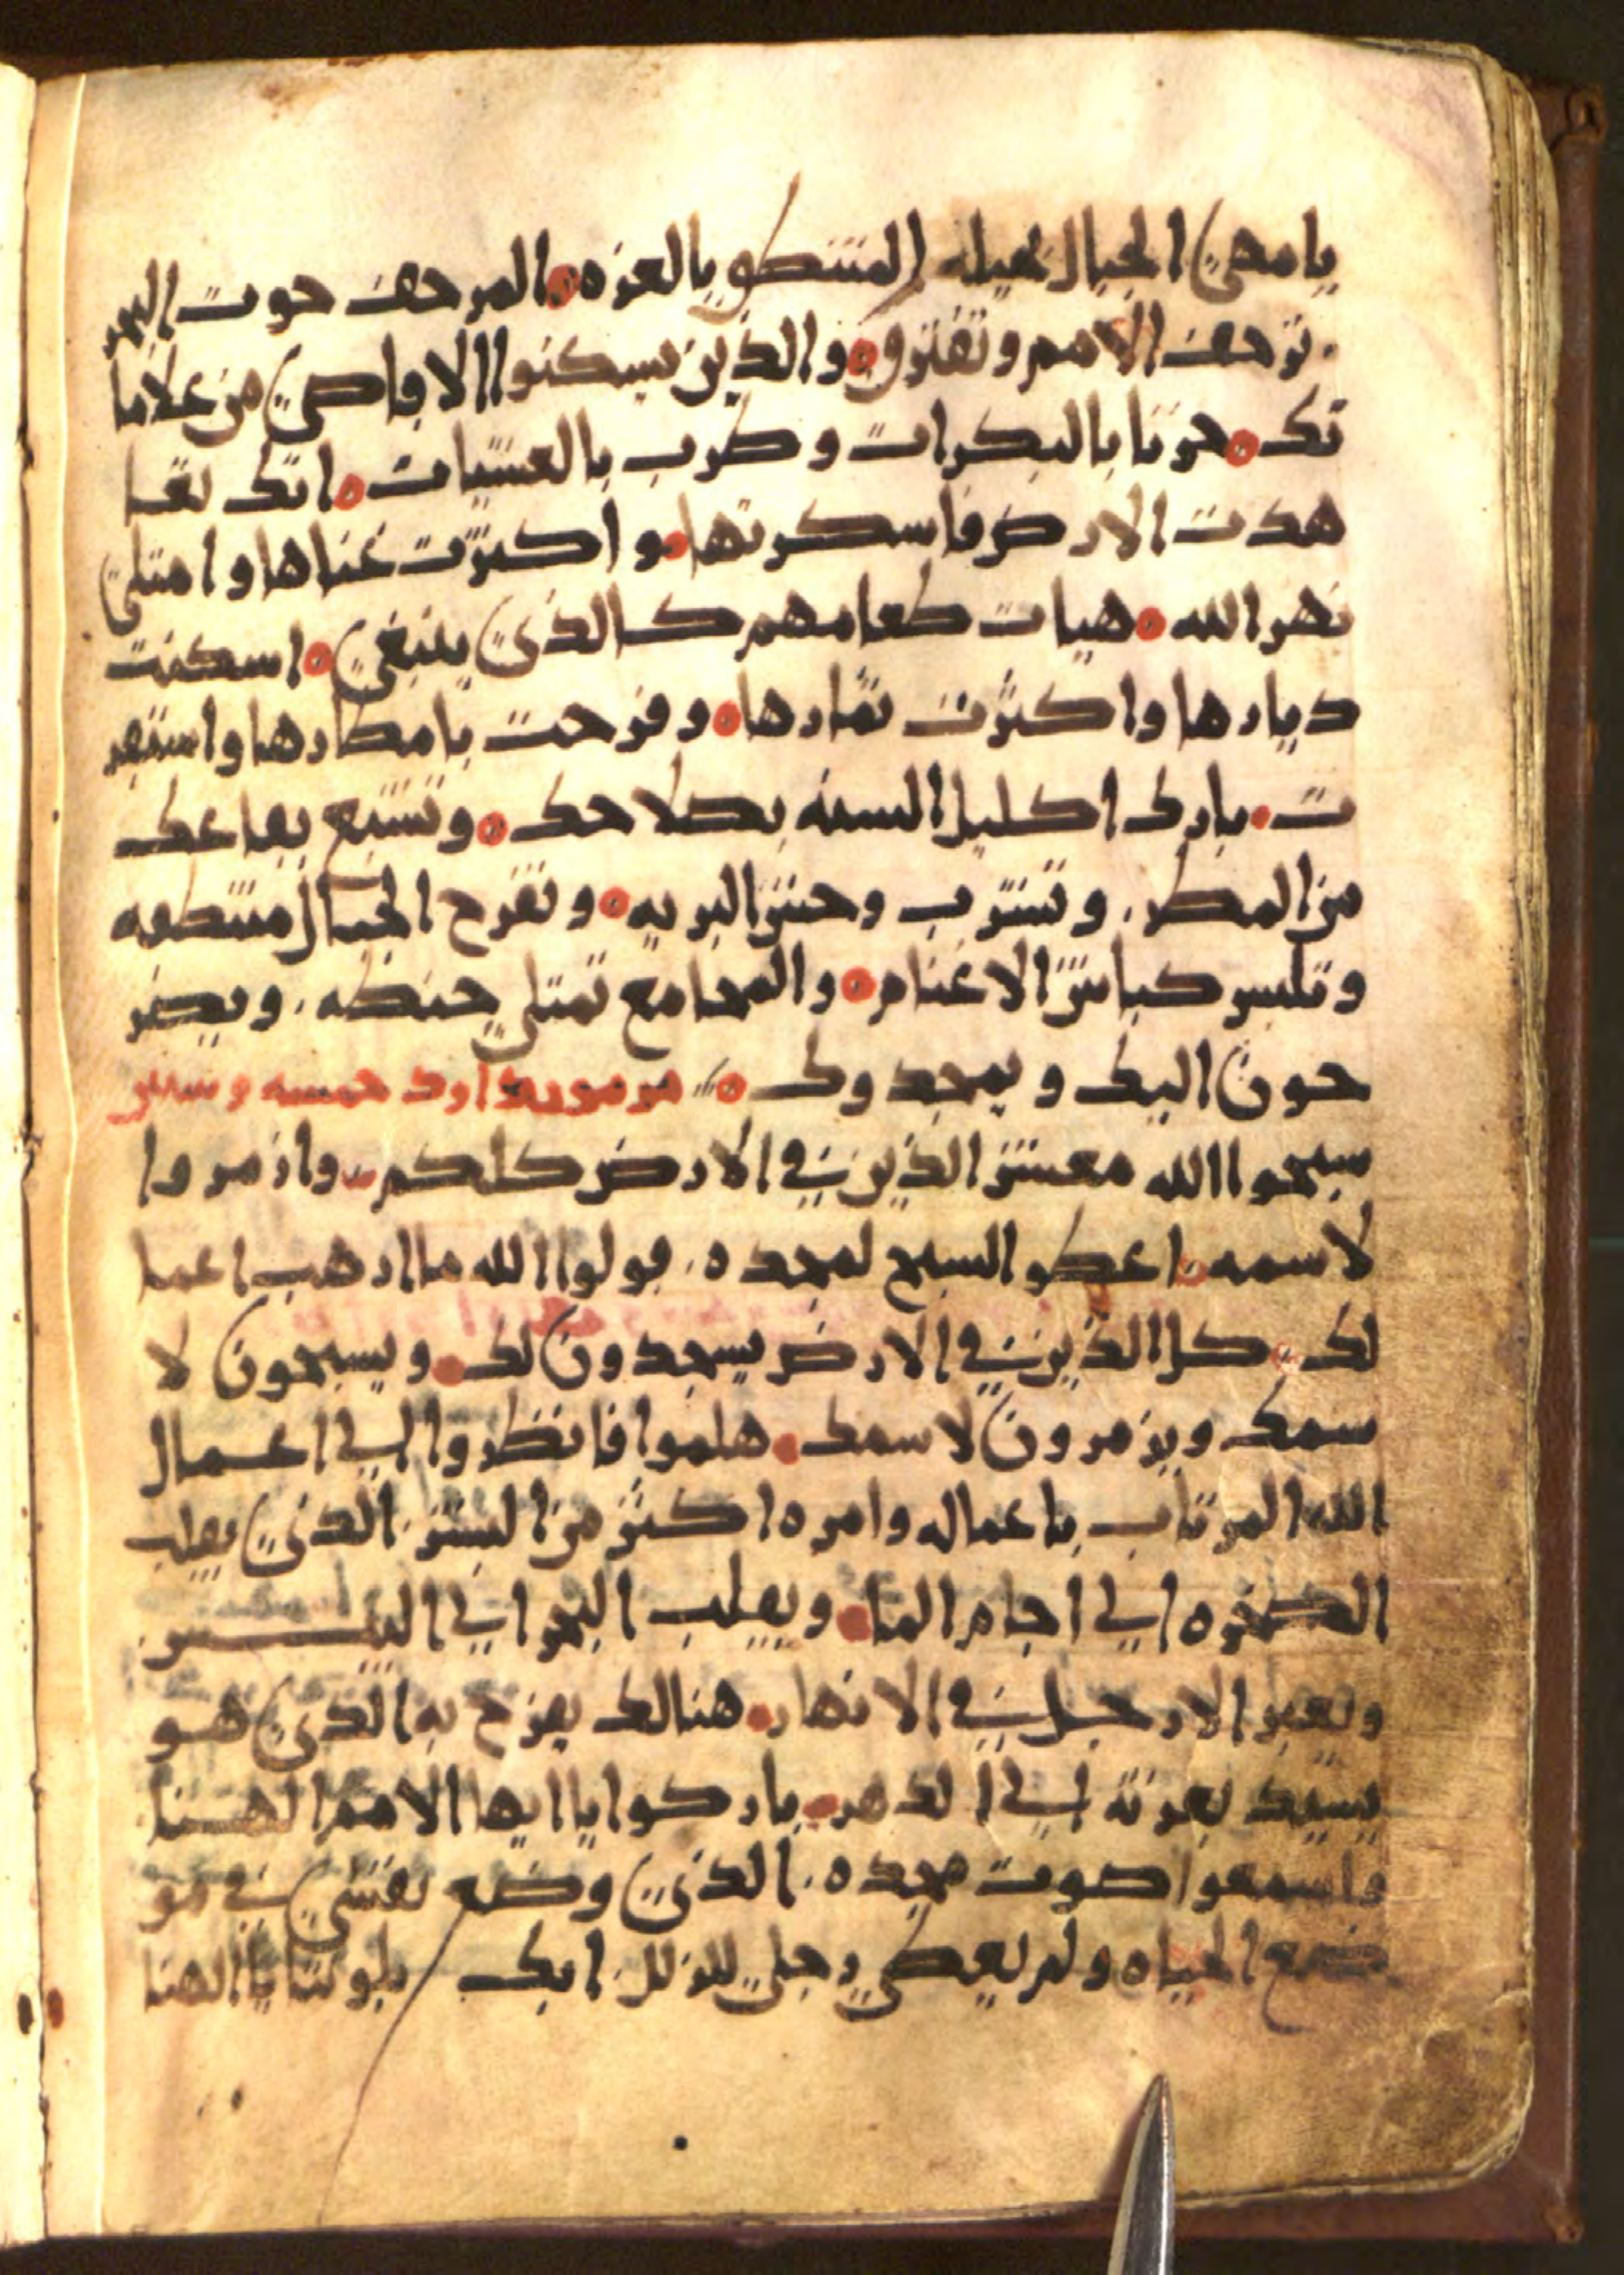 يا مهيئ الجبال بحيله المنتطق بالعزه المرجف حوت البحر
ترجف الامم وتفترق والذين يسكنوا الاقاصي من علاما
تك حرنا بالبكرات وطرب بالعشيات انك تعا
هدت الارض فاسكرتها واكثرت غناها وامتلي
نهر الله هيات طعامهم كالذي ينبغي اسكنت
ديارها واكثرت ثمارها وفرحت بامطارها واستقر
ت بارك اكليل السنه بصلاحك وتشبع بقاعك
من المطر وتشرب وحش البريه وتفرح الجبال منتطقه
وتلبس كباش الاغنام والمجامع تمتلي حنطه ويصر
خون اليك ويمجدوك مزمور داود خمسه وستين
سبحوا الله معشر الذين في الارض كلكم وازمروا
لاسمه اعطو السبح لمجده قولوا الله ما ارهب اعما
لك كل الذين في الارض يسجدون لك ويسبحون لا
سمك ويزمرون لاسمك هلموا فانظروا الي اعمال
الله المرتاب باعماله وامره اكثر من البشر الذي يقلب
الصخره الي اجام الما ويقلب البحر الي اليبس
وتعبر الارجل في الانهار هنالك يفرح به الذي هو
يسيد بعزته الي الدهر باركوا يا ايها الامم الهنا
واسمعوا صوت مجده الذي وضع نفسي في مو
ضع الحياه ولم يعطي رجلي للزلل انك بلوتنا يا الهنا